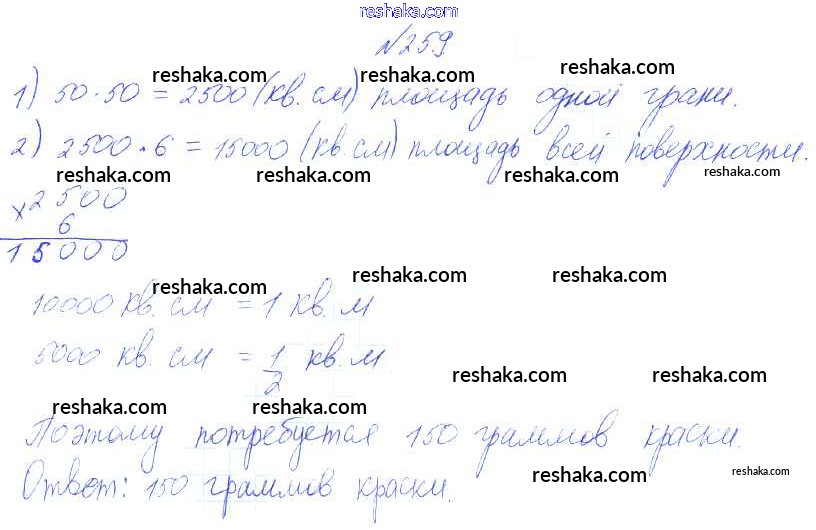 reshaka.com
№259
reshaka.com reshaka.com reshaka.com
1) 50·50 = 2500 (кв. см) площадь одной грани.
2) 2500·6 = 15000 (кв. см) площадь всей поверхности.
reshaka.com reshaka.com reshaka.com
×2500
6
15000
reshaka.com reshaka.com reshaka.com
10000 кв. см = 1 кв. м
5000 кв. см = 1/2 кв. м
reshaka.com reshaka.com
reshaka.com reshaka.com
Поэтому потребуется 150 граммов краски.
reshaka.com reshaka.com
Ответ: 150 граммов краски.